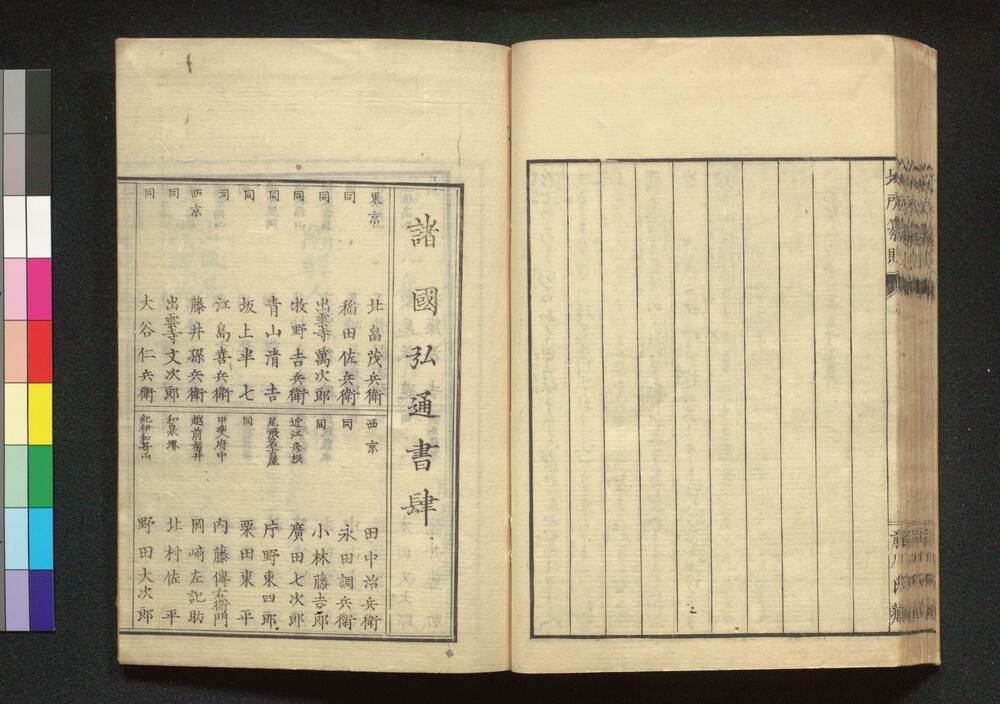 地所纂則
前川氏藏
諸國弘通書肆
東京 北畠茂兵衛
同 稲田佐兵衛
同 出雲寺萬次郎
同 牧野吉兵衛
同 青山清吉
同 坂上半七
同 江島喜兵衛
西京 藤井孫兵衛
同 出雲寺文次郎
同 大谷仁兵衛
西京 田中治兵衛
同 永田調兵衛
同 小林藤吉郎
近江彦根 廣田七次郎
尾張名古屋 片野東四郎
同 栗田東平
甲斐府中 内藤傳右衛門
越前福井 岡崎左記助
和泉堺 北村佐平
紀伊和哥山 野田大次郎